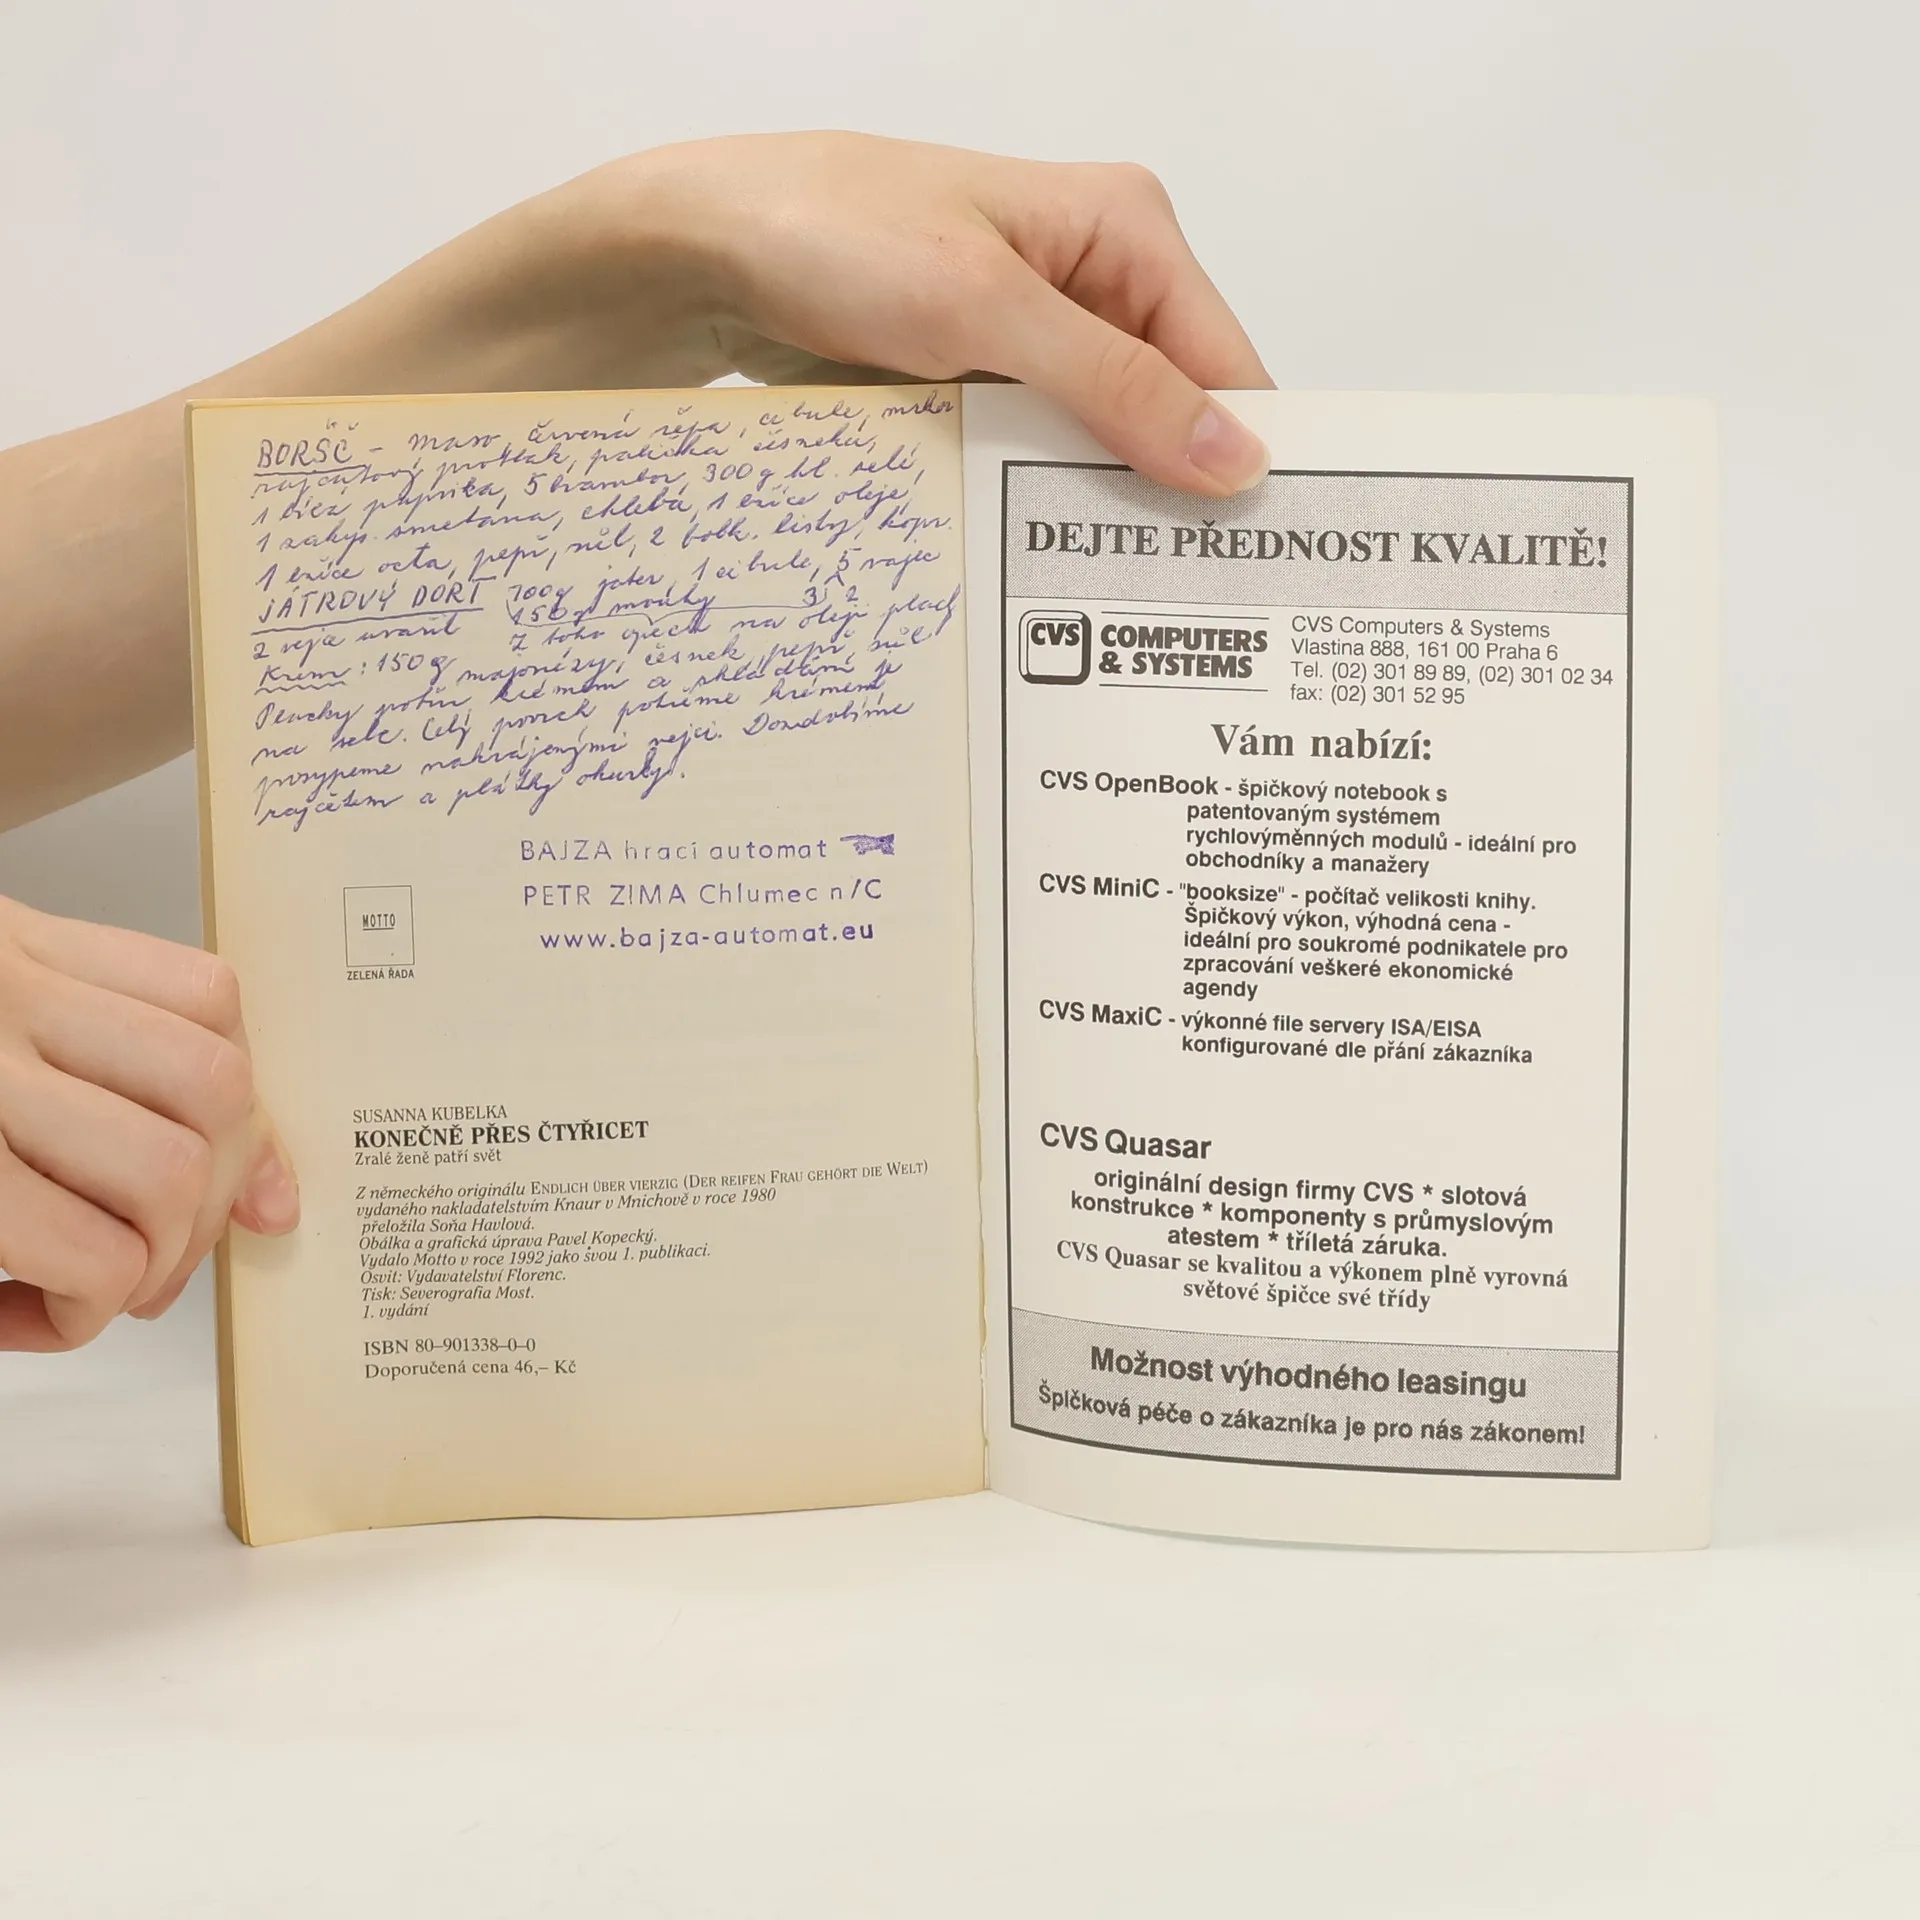 BORŠČ - maso, červená řepa, cibule, mrkev
rajčatový protlak, palička česneku,
1 bílá paprika, 5 brambor, 300g hl. zelí,
1 zakys. smetana, chleba, 1 lžíce oleje,
1 lžíce octa, pepř, sůl, 2 bobk. listy, kopr.
JÁTROVÝ DORT 700g jater, 1 cibule, 5 vajec
150g mouky 3 2
2 vejce uvařit z toho opéct na oleji plach
Krém: 150g majonézy, česnek, pepř, sůl
Placky potřít krémem a skládáme je
na sebe. Celý povrch potřeme krémem,
posypeme nakrájenými vejci. Dozdobíme
rajčetem a plátky okurky.
BAJZA hrací automat
PETR ZIMA Chlumec n/C
www.bajza-automat.eu
MOTTO
ZELENÁ ŘADA
SUSANNA KUBELKA
KONEČNĚ PŘES ČTYŘICET
Zralé ženě patří svět
Z německého originálu ENDLICH ÜBER VIERZIG (DER REIFEN FRAU GEHÖRT DIE WELT)
vydaného nakladatelstvím Knaur v Mnichově v roce 1980
přeložila Soňa Havlová.
Obálka a grafická úprava Pavel Kopecký.
Vydalo Motto v roce 1992 jako svou 1. publikaci.
Osvit: Vydavatelství Florenc.
Tisk: Severografia Most.
1. vydání
ISBN 80–901338–0–0
Doporučená cena 46,– Kč
DEJTE PŘEDNOST KVALITĚ!
CVS COMPUTERS
& SYSTEMS
CVS Computers & Systems
Vlastina 888, 161 00 Praha 6
Tel. (02) 301 89 89, (02) 301 02 34
fax: (02) 301 52 95
Vám nabízí:
CVS OpenBook - špičkový notebook s
patentovaným systémem
rychlovýměnných modulů - ideální pro
obchodníky a manažery
CVS MiniC - "booksize" - počítač velikosti knihy.
Špičkový výkon, výhodná cena -
ideální pro soukromé podnikatele pro
zpracování veškeré ekonomické
agendy
CVS MaxiC - výkonné file servery ISA/EISA
konfigurované dle přání zákazníka
CVS Quasar
originální design firmy CVS * slotová
konstrukce * komponenty s průmyslovým
atestem * tříletá záruka.
CVS Quasar se kvalitou a výkonem plně vyrovná
světové špičce své třídy
Možnost výhodného leasingu
Špičková péče o zákazníka je pro nás zákonem!